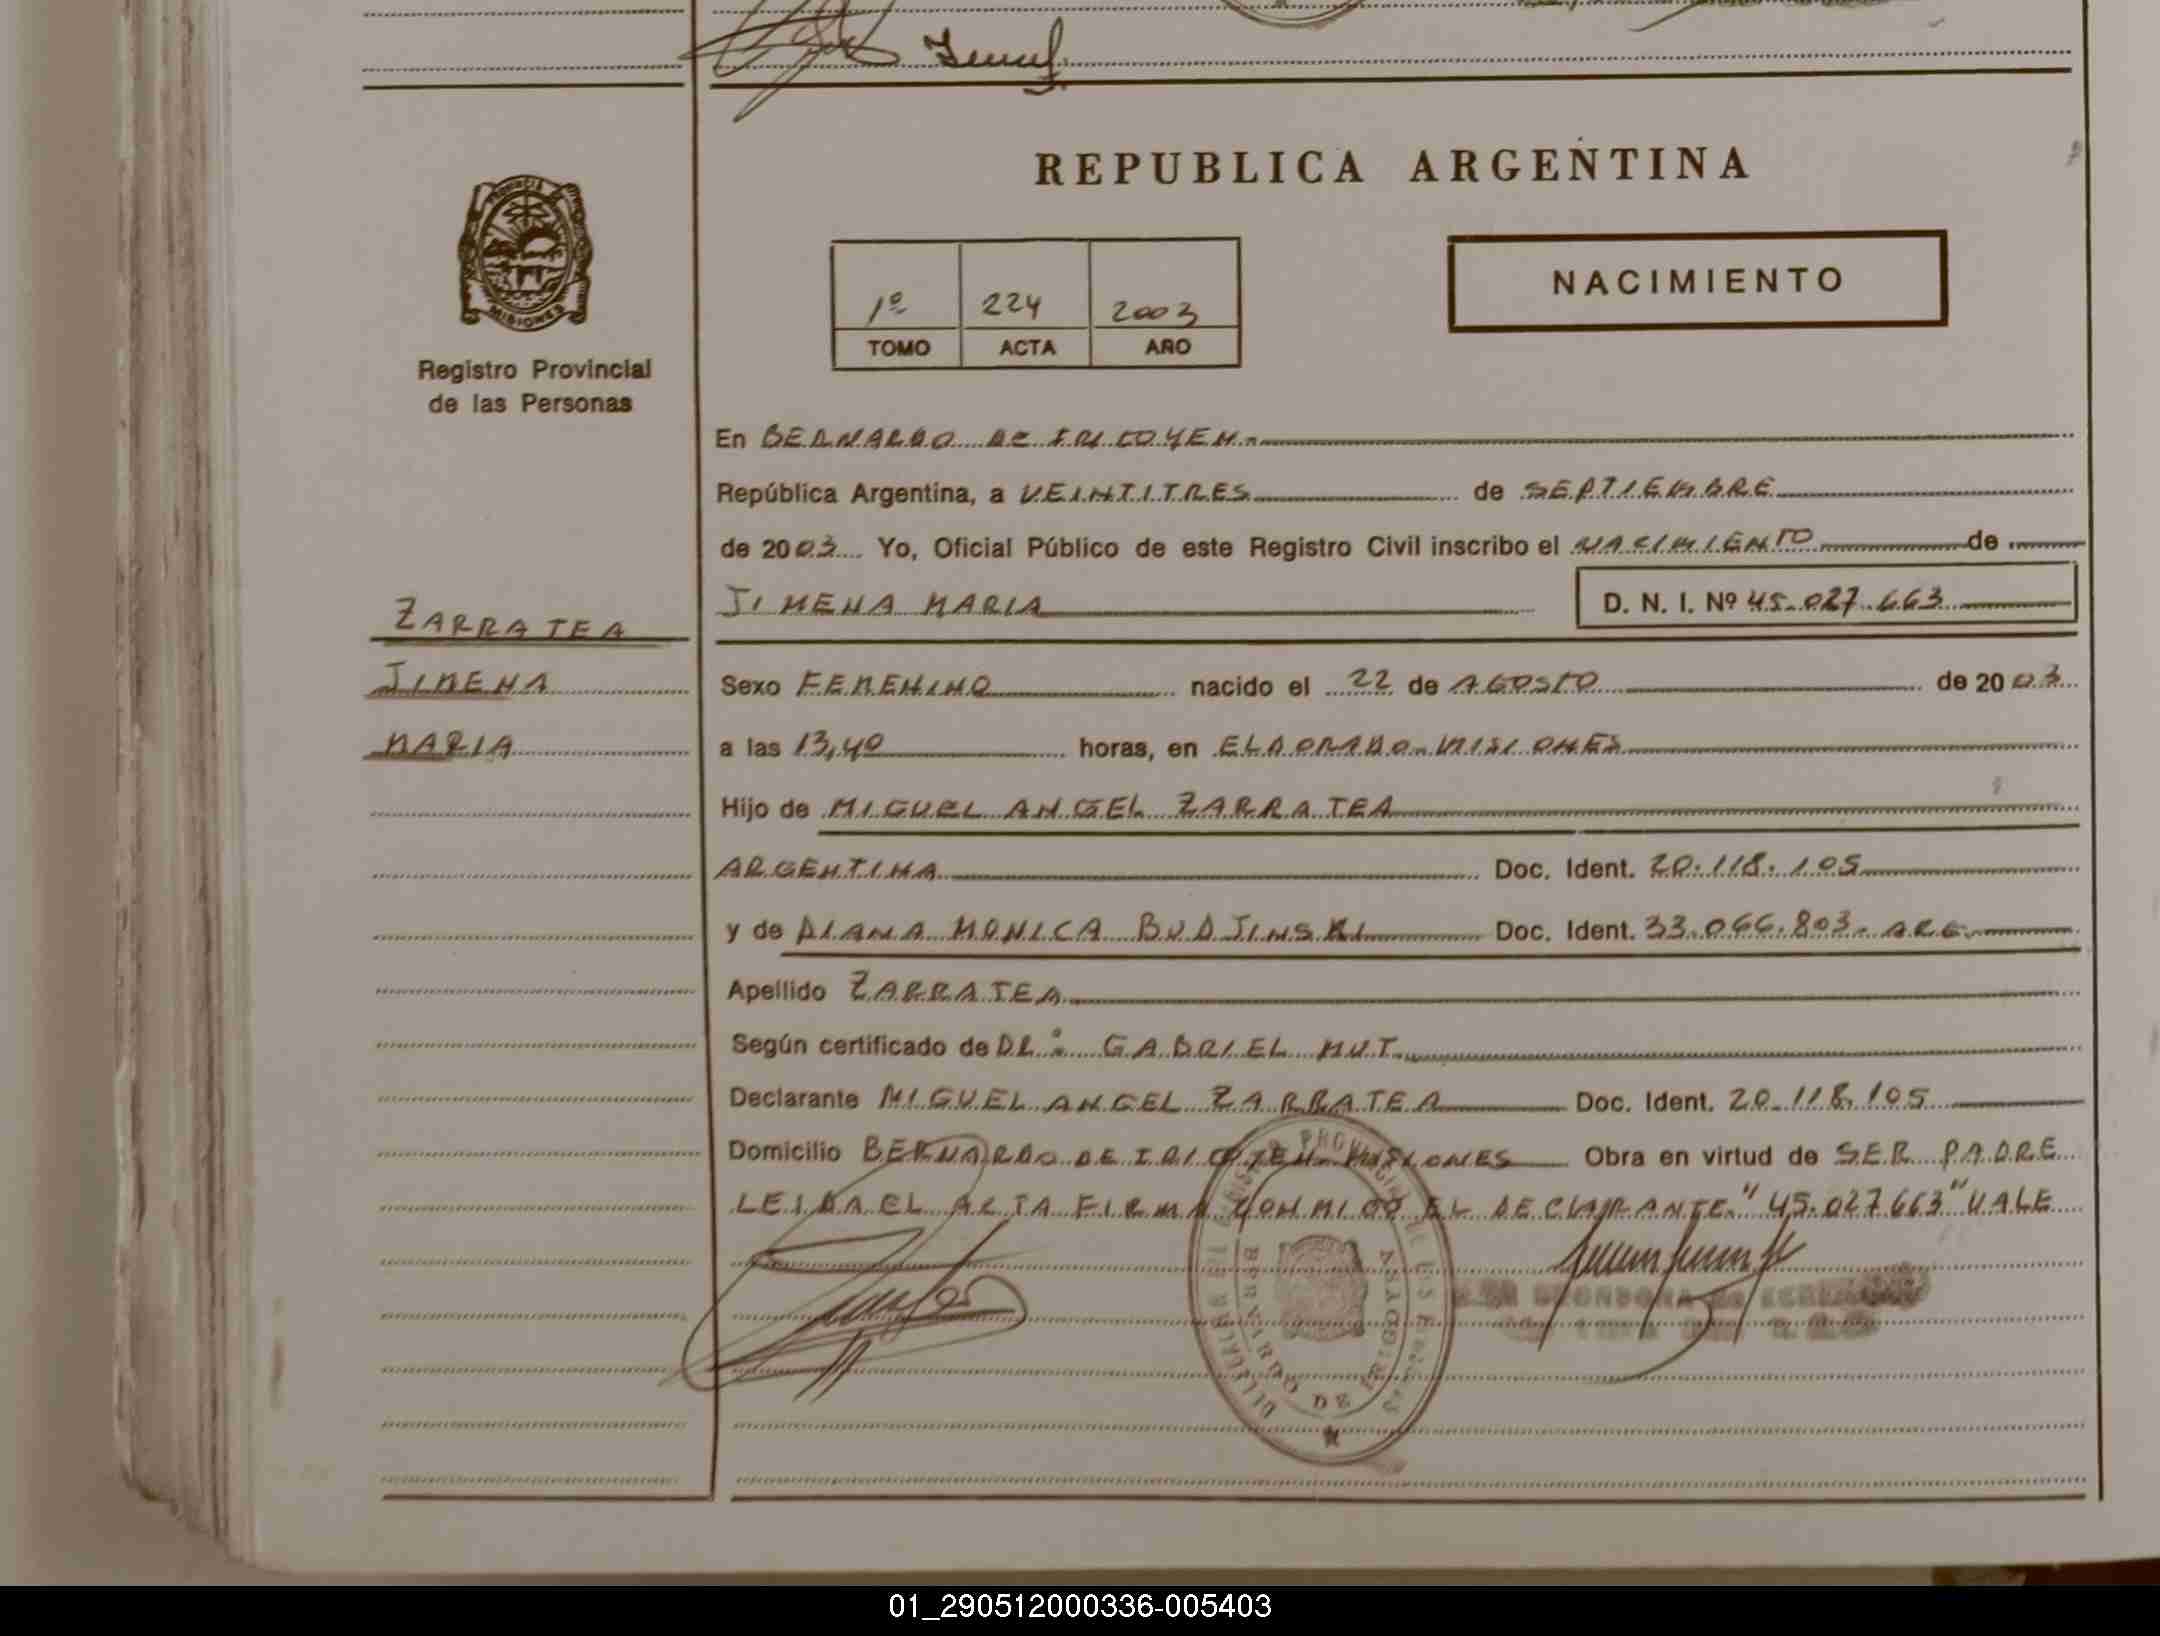 REPUBLICA ARGENTINA
PROVINCIA
MISIONES
Registro Provincial
de las Personas
1º 224 2003
TOMO ACTA AÑO
NACIMIENTO
En BERNARDO DE IRIGOYEN.-
República Argentina, a VEINTITRES de SEPTIEMBRE
de 2003 Yo, Oficial Público de este Registro Civil inscribo el NACIMIENTO de
JIMENA MARIA D. N. I. Nº 45.027.663
ZARRATEA
JIMENA
MARIA
Sexo FEMENINO nacido el 22 de AGOSTO de 2003
a las 13,40 horas, en ELDORADO-MISIONES
Hijo de MIGUEL ANGEL ZARRATEA
ARGENTINA Doc. Ident. 20.118.105
y de DIANA MONICA BUDJINSKI Doc. Ident. 33.066.803- ARG.
Apellido ZARRATEA
Según certificado de DR: GABRIEL MUT.
Declarante MIGUEL ANGEL ZARRATEA Doc. Ident. 20.118.105
Domicilio BERNARDO DE IRIGOYEN- MISIONES Obra en virtud de SER PADRE
LEIDA EL ACTA FIRMA CONMIGO EL DECLARANTE."45.027.663" VALE
BERNARDO DE
01_290512000336-005403